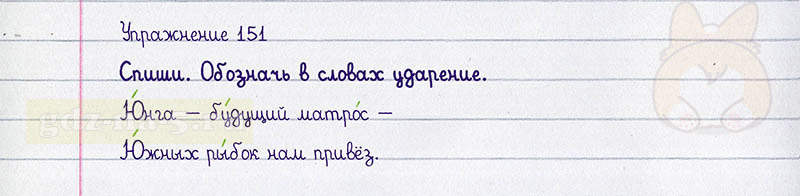 Упражнение 151
Спиши. Обозначь в словах ударение.
Ю́нга – бу́дущий матро́с –
Ю́жных ры́бок нам привёз.